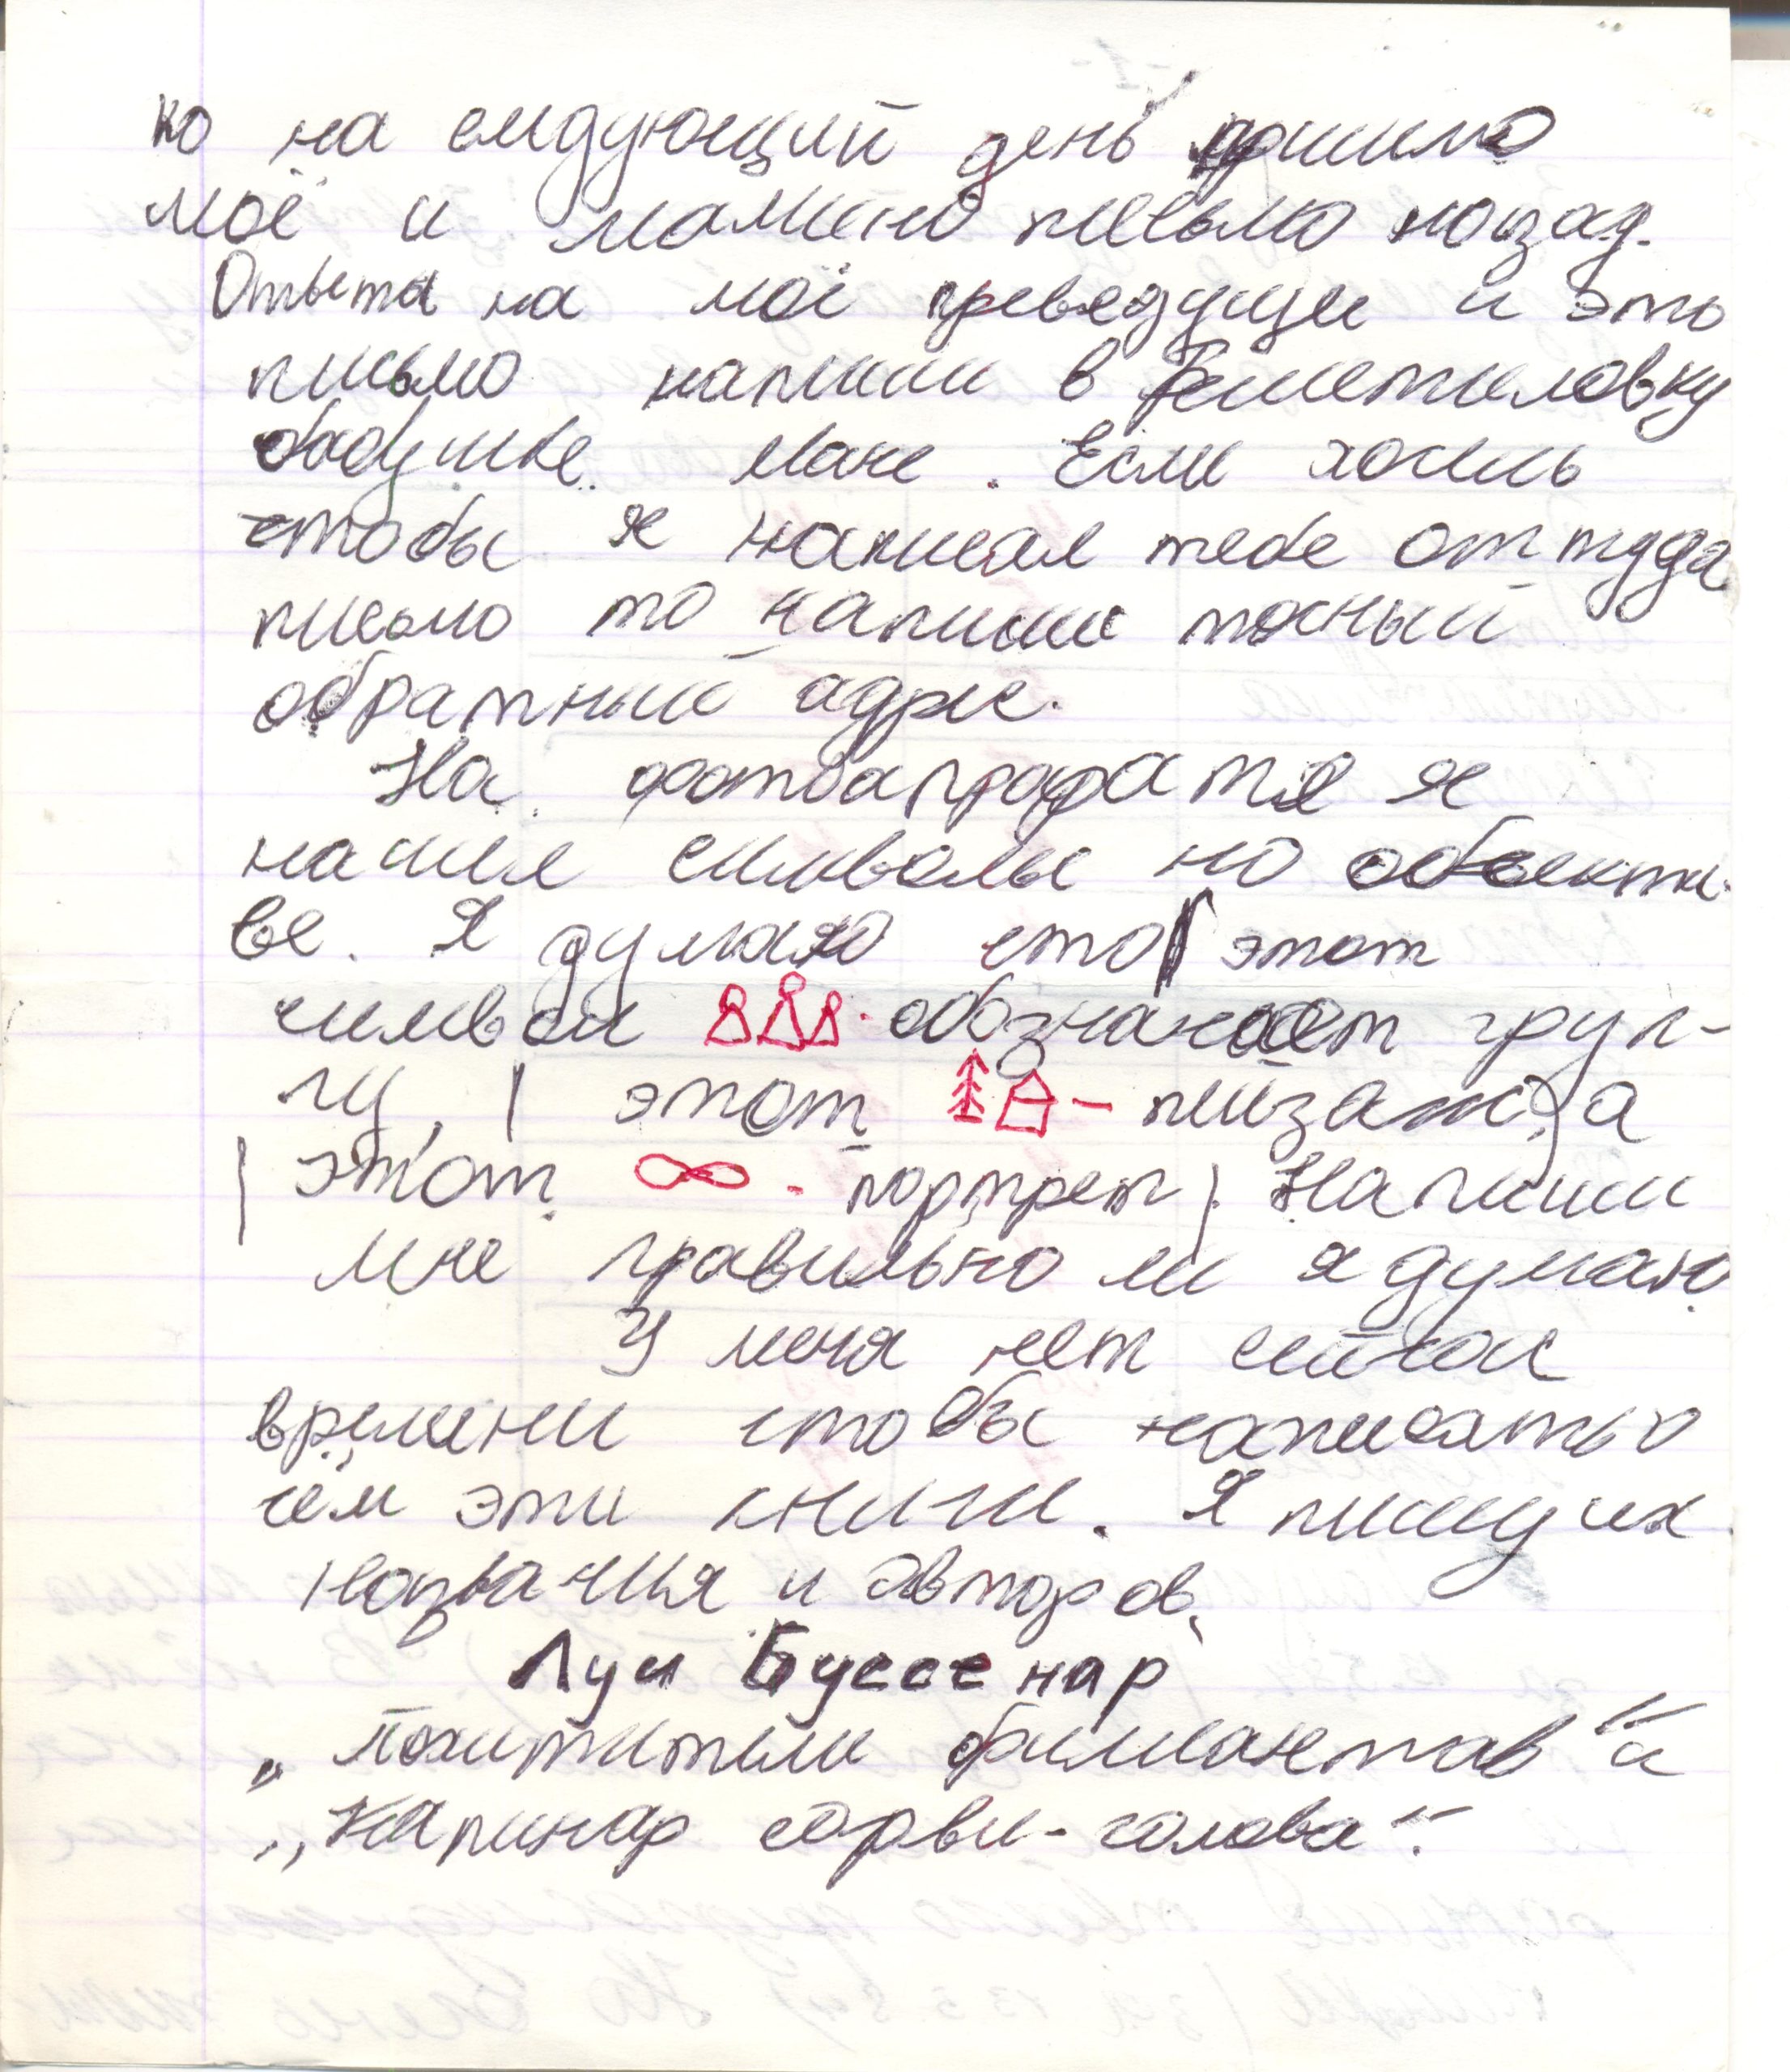 ко на следующий день пришло
моё и мамино письмо назад.
Ответа на моё преведущие и это
письмо напиши в Решетиловку
бабушке Мане. Если хочишь
чтобы я написал тебе от туда
письмо то напиши точный
обратный адрес.
На фотоапарате я
нашел символы но объекти-
ве. Я думаю что этот
символ обозначает груп-
пу, этот - пейзаж, а
этот - портрет. Напиши
мне правильно ли я думаю.
У меня нет сейчас
времени чтобы написать о
чём эти книги. Я пишу их
названия и авторов.
Луи Буссенар
„Похитители брилиантав" и
„Капинар сорви-голова".